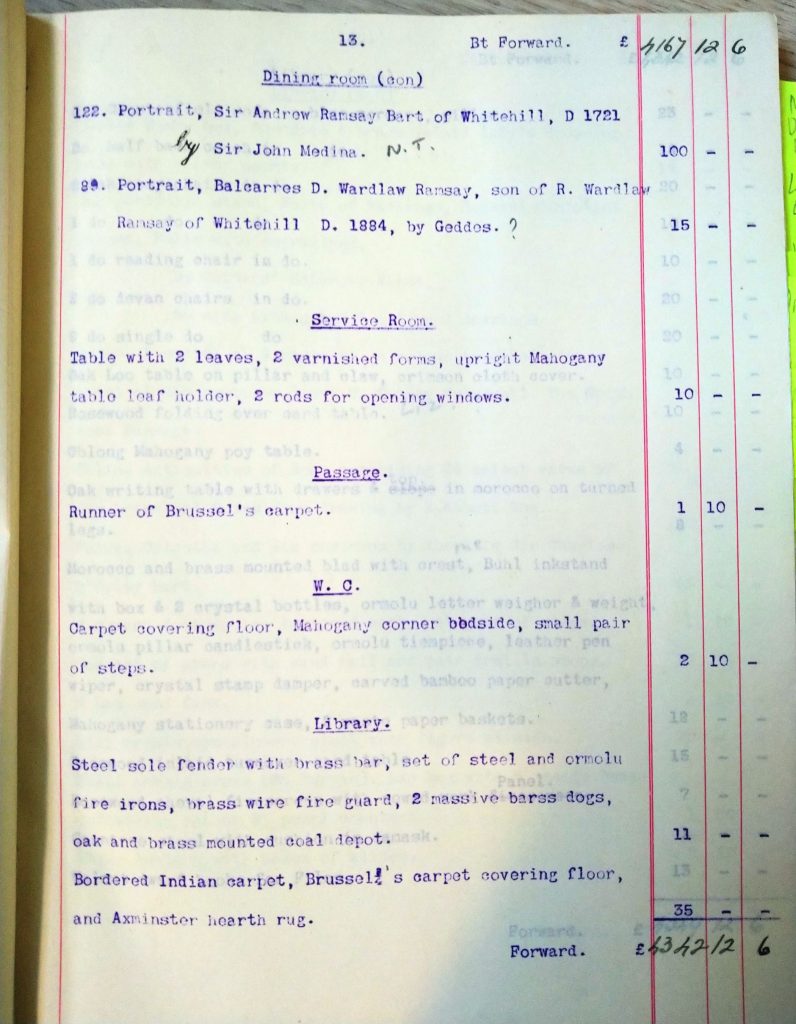 13. Bt Forward. £ 4167 12 6
Dining room (con)
122. Portrait, Sir Andrew Ramsay Bart of Whitehill, D 1721
by Sir John Medina. N.T. 100 - -
89. Portrait, Balcarres D. Wardlaw Ramsay, son of R. Wardlaw
Ramsay of Whitehill D. 1884, by Geddes. ? 15 - -
Service Room.
Table with 2 leaves, 2 varnished forms, upright Mahogany
table leaf holder, 2 rods for opening windows. 10 - -
Passage.
Runner of Brussel's carpet. 1 10 -
W. C.
Carpet covering floor, Mahogany corner bbdside, small pair
of steps. 2 10 -
Library.
Steel sole fender with brass bar, set of steel and ormolu
fire irons, brass wire fire guard, 2 massive barss dogs,
oak and brass mounted coal depot. 11 - -
Bordered Indian carpet, Brussel's carpet covering floor,
and Axminster hearth rug. 35 - -
Forward. £ 4342 12 6